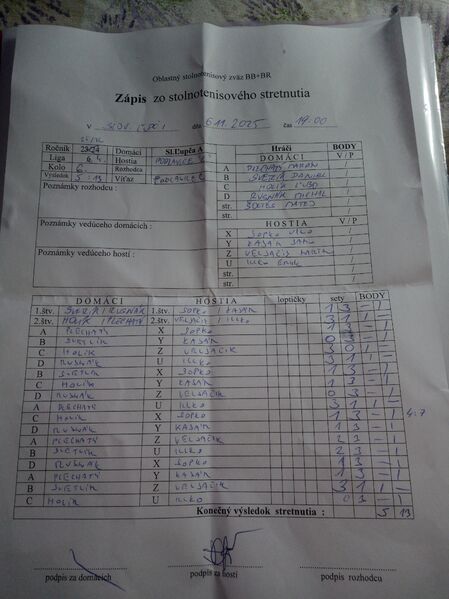 Oblastný stolnotenisový zväz BB+BR
Zápis zo stolnotenisového stretnutia
v SLOV. ĽUPČI dňa 6.11.2025 čas 17:00
Ročník Domáci Sl.Ľupča A
Liga 6. Hostia PODLAVICE
Kolo 6. Rozhodca
Výsledok 5 : 13 Víťaz PODLAVICE
Hráči BODY
DOMÁCI V / P
A PLECHATÝ
B SVETLÍK DANIEL
C HOLÍK ĽUBO
D RUSNÁK MICHAL
str. MATEJ
str.
HOSTIA V / P
X SOPKO
Y KASAN JANO
Z VELJAČIK MARTIN
U ILLKO EMIL
Poznámky rozhodcu :
Poznámky vedúceho domácich :
Poznámky vedúceho hostí :
DOMÁCI HOSTIA loptičky sety BODY
1.štv. SVETLÍK / RUSNÁK 1.štv. SOPKO / KASAN 1 3 – 1
2.štv. HOLÍK / PLECHATÝ 2.štv. VELJAČIK / ILLKO 3 1 1 –
A PLECHATÝ X SOPKO 1 3 – 1
B SVETLÍK Y KASAN 0 3 – 1
C HOLÍK Z VELJAČIK 3 0 1 –
D RUSNÁK U ILLKO 3 1 1 –
B SVETLÍK X SOPKO 1 3 – 1
C HOLÍK Y KASAN 1 3 – 1
D RUSNÁK Z VELJAČIK 0 3 – 1
A PLECHATÝ U ILLKO 3 1 1 –
C HOLÍK X SOPKO 1 3 – 1 4:7
D RUSNÁK Y KASAN 1 3 – 1
A PLECHATÝ Z VELJAČIK 2 3 – 1
B SVETLÍK U ILLKO 2 3 – 1
D RUSNÁK X SOPKO 1 3 – 1
A PLECHATÝ Y KASAN 1 3 – 1
B SVETLÍK Z VELJAČIK 3 1 1 –
C HOLÍK U ILLKO 0 3 – 1
Konečný výsledok stretnutia : 5 13
podpis za domácich podpis za hostí podpis rozhodcu